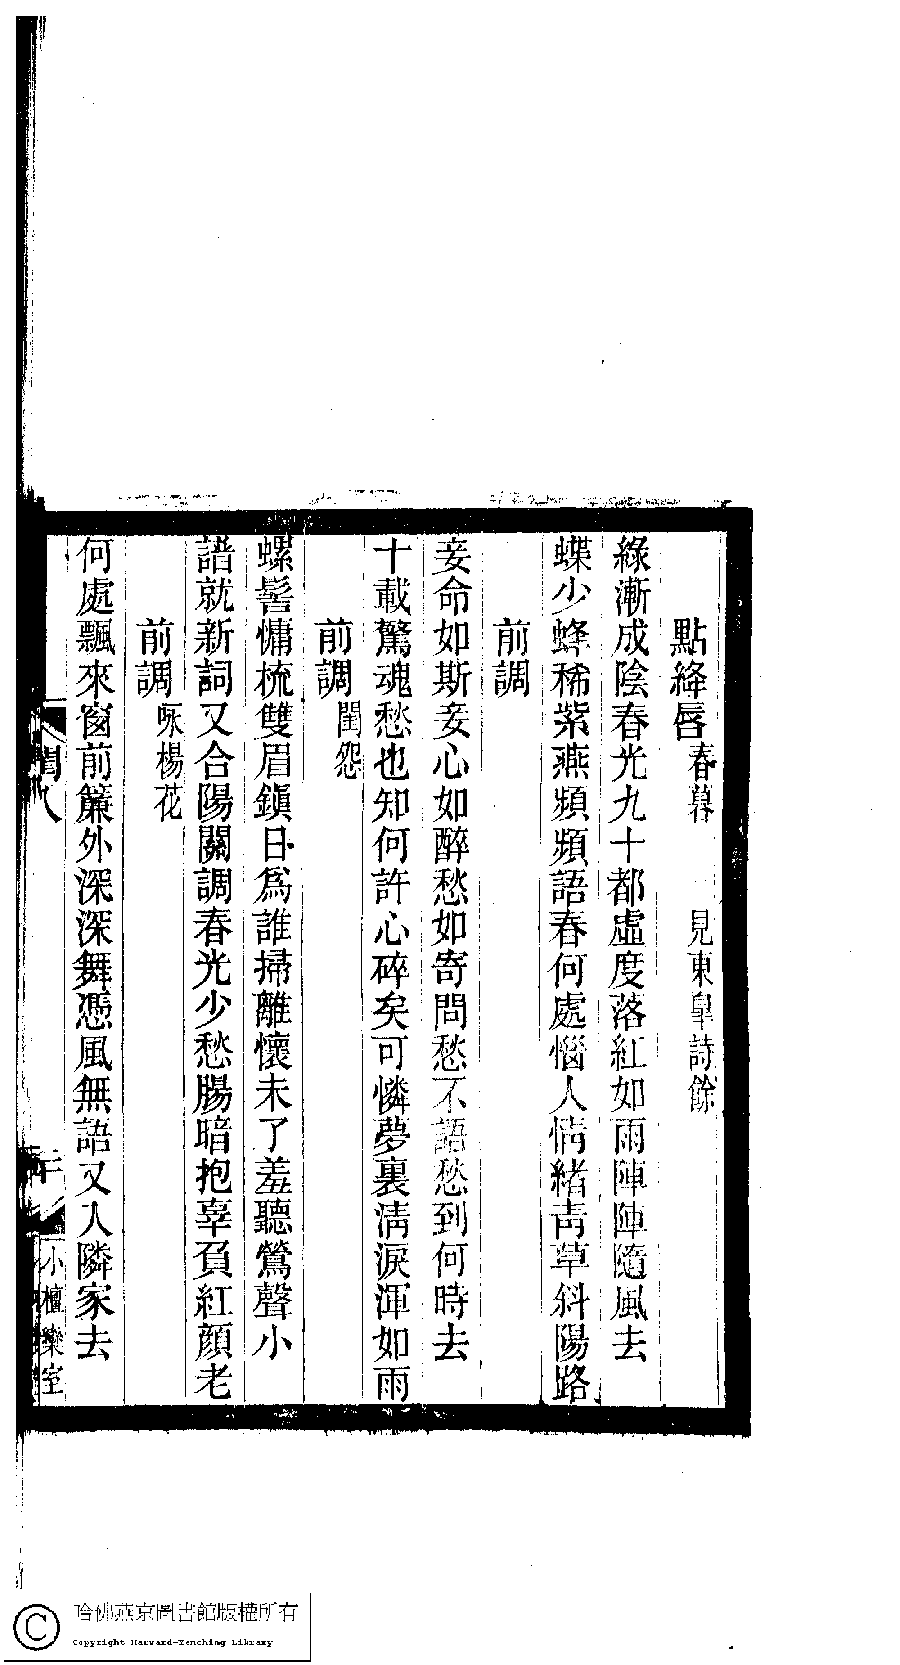 點絳唇春暮　見東皐詩餘
綠漸成陰春光九十都虛度落紅如雨陣陣隨風去
蝶少蜂稀紫燕頻頻語春何處惱人情緒靑草斜陽路
前調
妾命如斯妾心如醉愁如寄問愁不語愁到何時去
十載驚魂愁也知何許心碎矣可憐夢裏淸淚渾如雨
前調閨怨
螺髻慵梳雙眉鎭日爲誰掃離懷未了羞聽鶯聲小
譜就新詞又合陽關調春光少愁腸暗抱辜負紅顏老
前調咏楊花
何處飄來窗前簾外深深舞憑風無語又人隣家去
閨八
小檀欒室
哈佛燕京圖書館版權所有
Copyright Harvard-Yenching Library